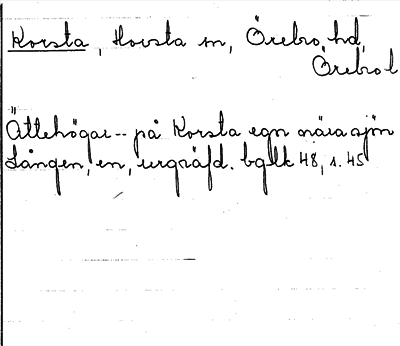 Korsta, Hovsta sn, Örebro hd,
Örebro l
Ättehögar -- på Korsta egn nära sjön
Lången, en, urgräfd. bglk 48, s. 45